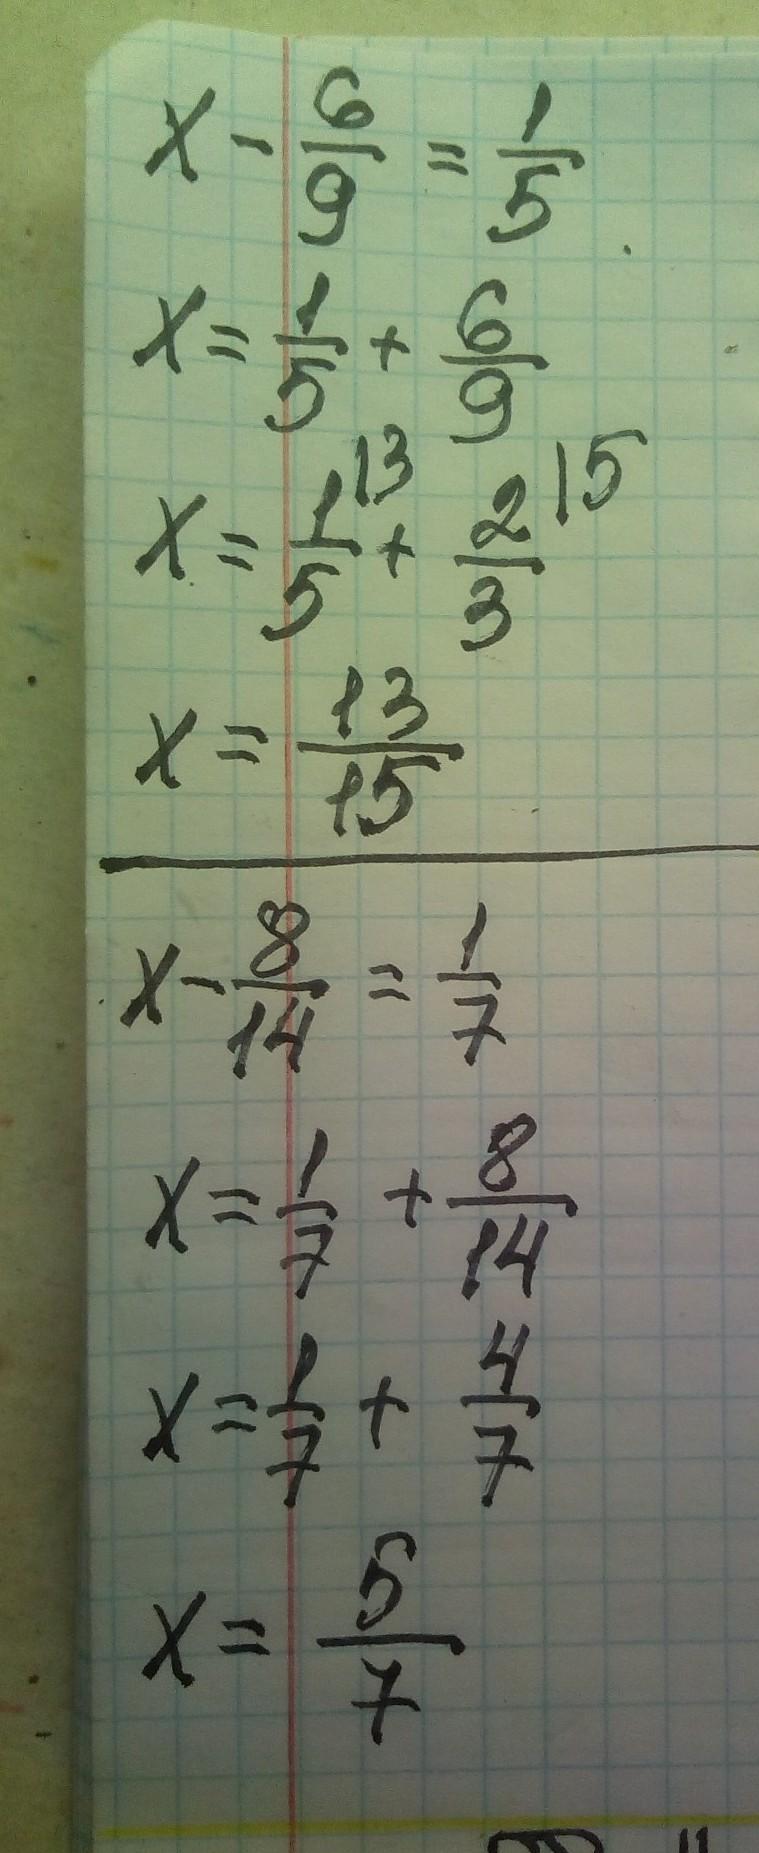 x - 6/9 = 1/5
x = 1/5 + 6/9
x = 1/5 ⁽³ + 2/3 ⁽⁵
x = 13/15
x - 8/14 = 1/7
x = 1/7 + 8/14
x = 1/7 + 4/7
x = 5/7